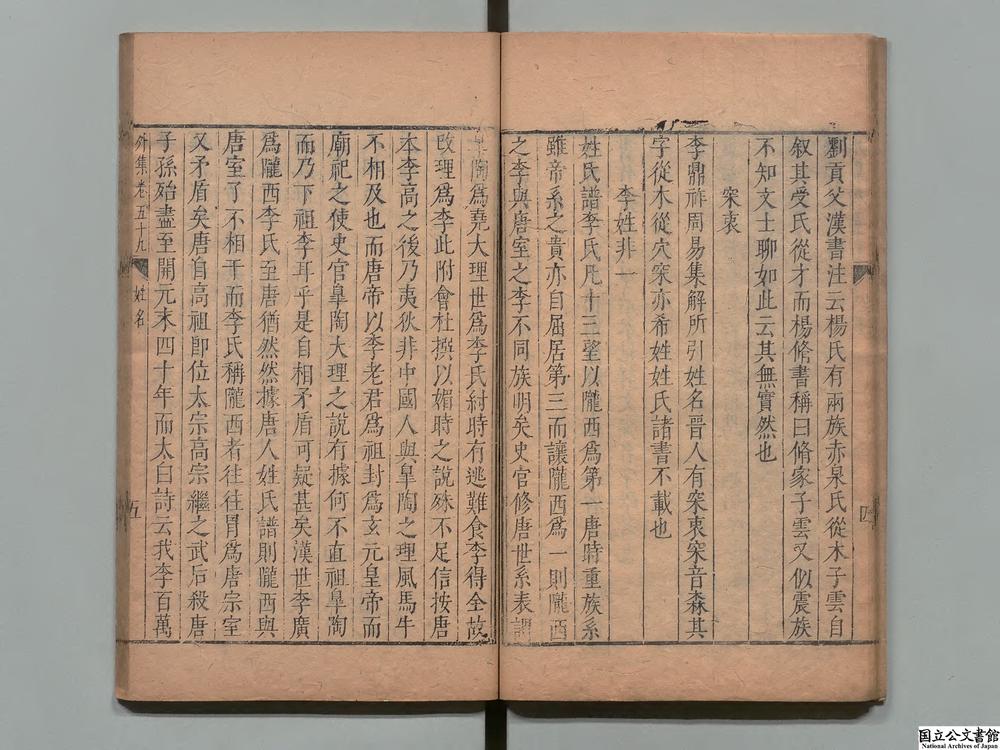 劉貢父漢書注云楊氏有兩族赤泉氏從木子雲自
叙其受氏從才而楊脩書稱曰脩家子雲又似震族
不知文士聊如此云其無實然也
罙衷
李鼎祚周易集解所引姓名晉人有罙衷罙音森其
字從木從穴罙亦希姓姓氏諸書不載也
李姓非一
姓氏譜李氏凡十三望以隴西爲第一唐時重族系
雖帝系之貴亦自屈居第三而讓隴西爲一則隴西
之李與唐室之李不同族明矣史官修唐世系表謂
四
陶爲堯大理世爲李氏紂時有逃難食李得全故
改理爲李此附會杜撰以媚時之說殊不足信按唐
本李高之後乃夷狄非中國人與皐陶之理風馬牛
不相及也而唐帝以李老君爲祖封爲玄元皇帝而
廟祀之使史官皐陶大理之說有據何不直祖皐陶
而乃下祖李耳乎是自相矛盾可疑甚矣漢世李廣
爲隴西李氏至唐猶然然據唐人姓氏譜則隴西與
唐室了不相干而李氏稱隴西者往往冒爲唐宗室
又矛盾矣唐自高祖即位太宗高宗繼之武后殺唐
子孫殆盡至開元末四十年而太白詩云我李百萬
外集卷五十九 姓名 五
国立公文書館
National Archives of Japan